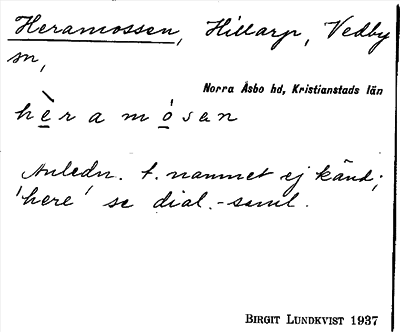 Heramossen, Hillarp, Vedby
sn,
Norra Åsbo hd, Kristianstads län
hè̱ra mó̱sen
Anledn. t. namnet ej känd;
'here' se dial.-saml.
BIRGIT LUNDKVIST 1937